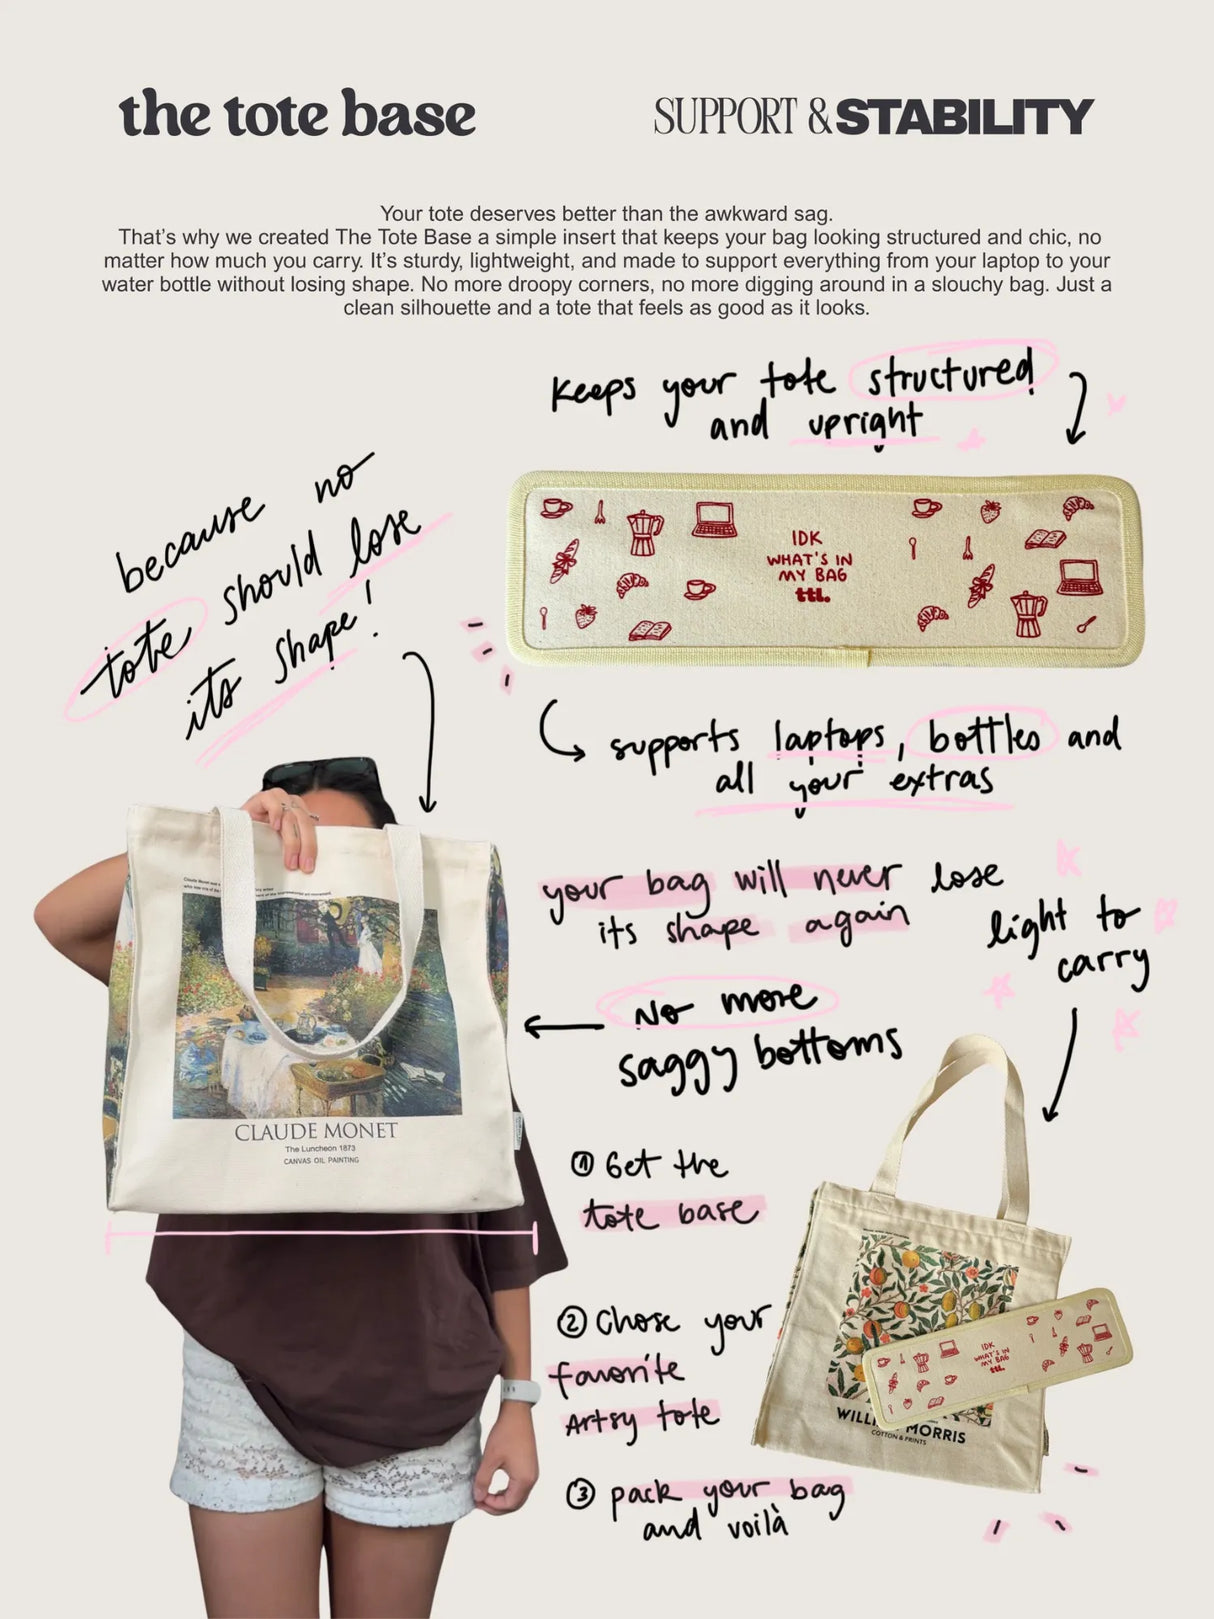 the tote base
SUPPORT & STABILITY
Your tote deserves better than the awkward sag.
That's why we created The Tote Base a simple insert that keeps your bag looking structured and chic, no
matter how much you carry. It's sturdy, lightweight, and made to support everything from your laptop to your
water bottle without losing shape. No more droopy corners, no more digging around in a slouchy bag. Just a
clean silhouette and a tote that feels as good as it looks.
Keeps your tote structured
and upright
because no
tote should lose
its shape!
IDK
WHAT'S IN
MY BAG
ttl.
supports laptops, bottles and
all your extras
your bag will never lose
its shape again
light to
carry
No more
saggy bottoms
CLAUDE MONET
The Luncheon 1873
CANVAS OIL PAINTING
① Get the
tote base
② Chose your
favorite
Artsy tote
③ pack your bag
and voilà
IDK
WHAT'S IN
MY BAG
ttl.
MORRIS
COTTON & PRINTS